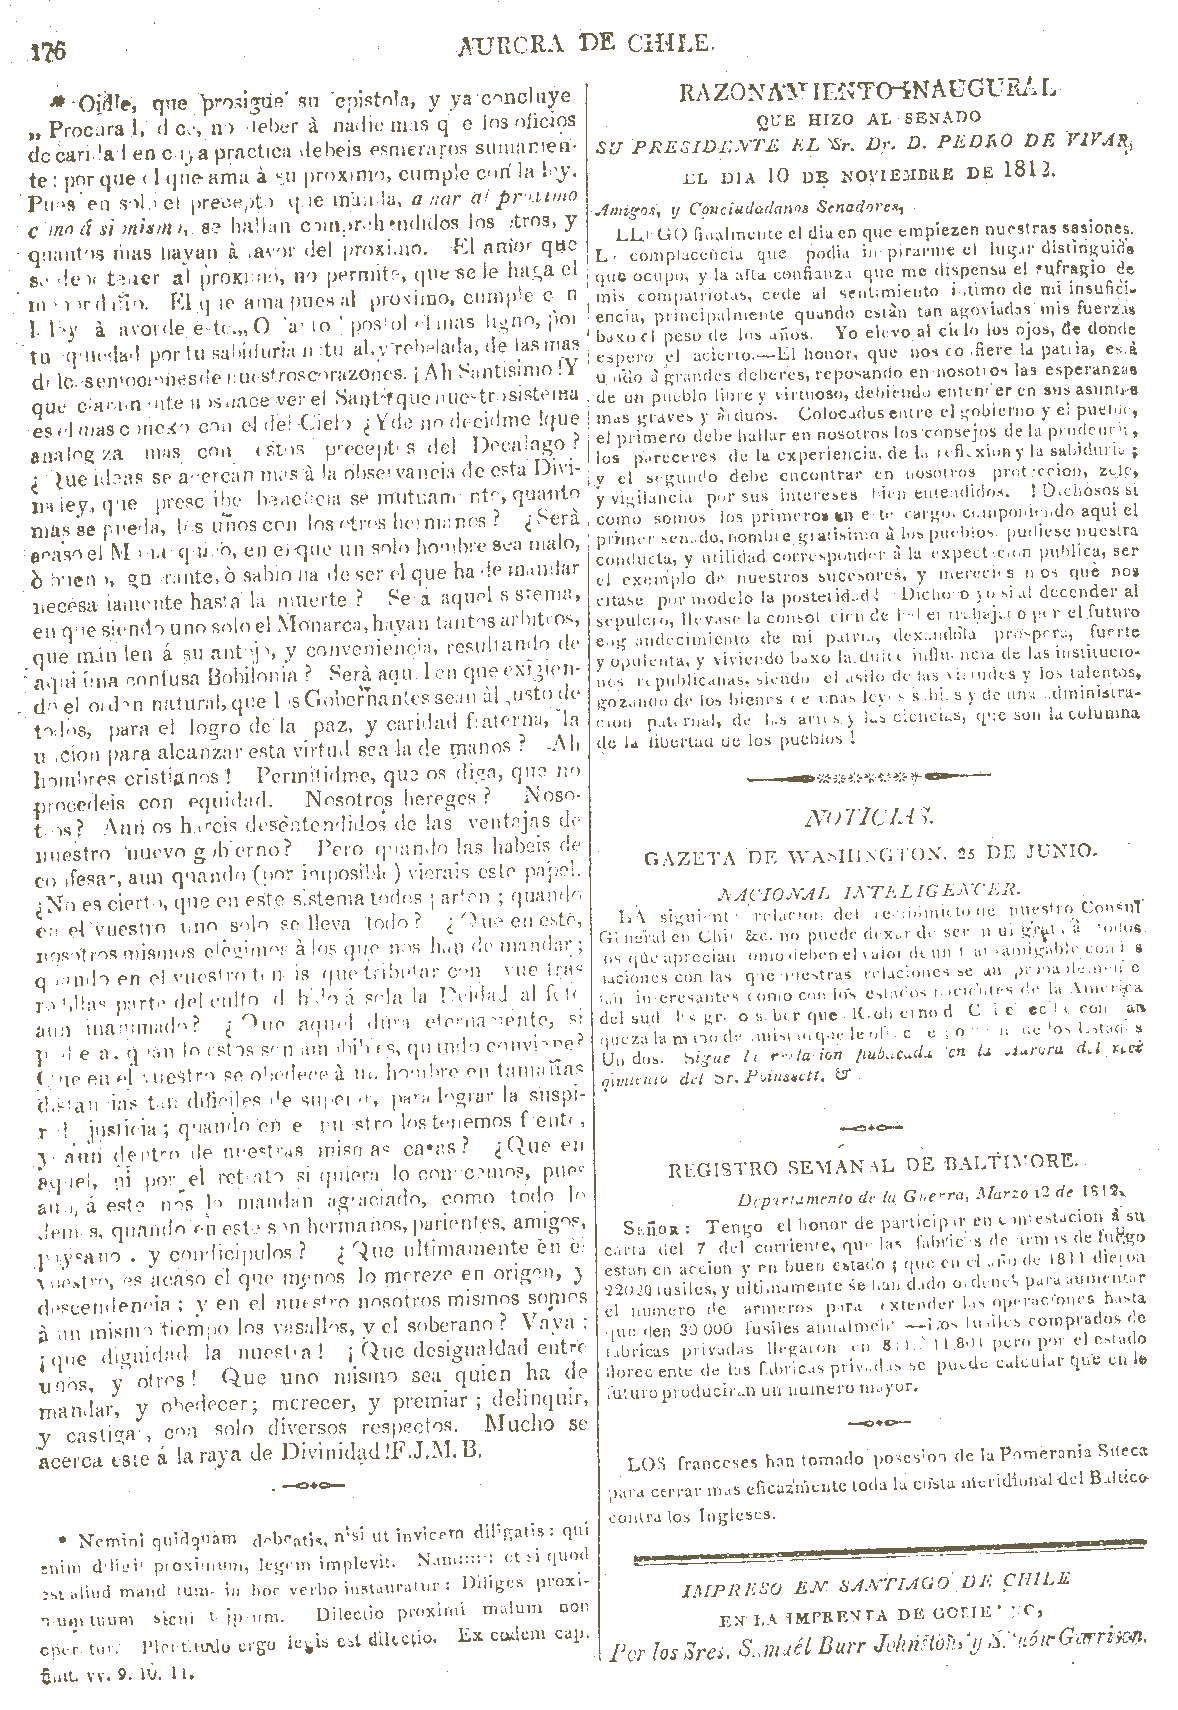 176
AURORA DE CHILE.
* Oidle, que prosigue su epistola, y ya concluye
„ Procurad, dice, no deber à nadie mas que los oficios
de caridad en cuya practica debeis esmeraros sumamen-
te: porque el que ama à su proximo, cumple con la ley.
Pues en solo el precepto que manda, amar al proximo
como à si mismo, se hallan comprehendidos los otros, y
quantos mas hayan à favor del proximo. El amor que
se debe tener al proximo, no permite, que se le haga el
menor daño. El que ama pues al proximo, cumple con
la ley à favor de este.,, O santo Apostol el mas digno, por
tu quedad por tu sabiduria natural, y rebelada, de las mas
de nuestros corazones. ¡ Ah Santisimo! Y
que claramente nos hace ver el Santo que nuestro sistema
es el mas conexo con el del Cielo ¿ Y de no decidme ¿que
analogiza mas con estos preceptos del Decalago?
¿ Que ideas se acercan mas à la observancia de esta Divi-
na ley, que prescribe hacerse mutuamente, quanto
mas se pueda, los unos con los otros hermanos? ¿ Serà
acaso el Monarquico, en el que un solo hombre sea malo,
ò bueno, ignorante, ò sabio ha de ser el que ha de mandar
necesariamente hasta la muerte? Será aquel sistema,
en que siendo uno solo el Monarca, hayan tantos arbitros,
que manden á su antojo, y conveniencia, resultando de
aqui una confusa Bobilonia? Serà aquel en que exigien-
do el orden natural, que los Gobernantes sean àl gusto de
todos, para el logro de la paz, y caridad fraterna, la
accion para alcanzar esta virtud sea la de manos? Ah
hombres cristianos! Permitidme, que os diga, que no
procedeis con equidad. Nosotros hereges? Noso-
tros? Aun os hareis desentendidos de las ventajas de
nuestro nuevo gobierno? Pero quando las habeis de
confesar, aun quando (por imposible) vierais este papel.
¿ No es cierto, que en este sistema todos parten; quando
en el vuestro uno solo se lleva todo? ¿ Que en este,
nosotros mismos elegimos à los que nos han de mandar;
quando en el vuestro teneis que tributar con vuestras
rodillas parte del culto debido á sola la Deidad al feto
aun inanimado? ¿ Que aquel dura eternamente, si
quando estos son amobibles, quando conviene?
Que en el vuestro se obedece à un hombre en tamañas
distancias tan dificiles de superar, para lograr la suspi-
rada justicia; quando en el nuestro los tenemos frente,
y aun dentro de nuestras mismas casas? ¿ Que en
aquel, ni por el retrato si quiera lo conocemos, pues
aun, á este nos lo mandan agraciado, como todo lo
demas, quando en este son hermanos, parientes, amigos,
paysanos, y condicipulos? ¿ Que ultimamente en el
vuestro, es acaso el que menos lo mereze en origen, y
descendencia; y en el nuestro nosotros mismos somos
à un mismo tiempo los vasallos, y el soberano? Vaya:
¡ que dignidad la nuestra! ¡ Que desigualdad entre
unos, y otros! Que uno mismo sea quien ha de
mandar, y obedecer; merecer, y premiar; delinquir,
y castigar, con solo diversos respectos. Mucho se
acerca este á la raya de Divinidad! F.J.M.B.
* Nemini quidquam debeatis, nisi ut invicem diligatis: qui
enim diligit proximum, legem implevit. Nam et si quod
est aliud mandatum in hoc verbo instauratur: Diliges proxi-
mum tuum sicut te ipsum. Dilectio proximi malum non
operatur. Plenitudo ergo legis est dilectio. Ex eodem cap.
vv. 9. 10. 11.
RAZONAMIENTO INAUGURAL
QUE HIZO AL SENADO
SU PRESIDENTE EL Sr. Dr. D. PEDRO DE VIVAR,
EL DIA 10 DE NOVIEMBRE DE 1812.
Amigos, y Conciudadanos Senadores,
LLEGO finalmente el dia en que empiezen nuestras sesiones.
La complacencia que podia inspirarme el lugar distinguido
que ocupo, y la alta confianza que me dispensa el sufragio de
mis compatriotas, cede al sentimiento intimo de mi insufici-
encia, principalmente quando están tan agoviadas mis fuerzas
baxo el peso de los años. Yo elevo al cielo los ojos, de donde
espero el acierto.—El honor, que nos confiere la patria, está
unido á grandes deberes, reposando en nosotros las esperanzas
de un pueblo libre y virtuoso, debiendo entender en sus asuntos
mas graves y àrduos. Colocados entre el gobierno y el pueblo,
el primero debe hallar en nosotros los consejos de la prudencia,
los pareceres de la experiencia, de la reflexion y la sabiduria;
y el segundo debe encontrar en nosotros proteccion, zelo,
y vigilancia por sus intereses bien entendidos. ! Dichosos si
como somos los primeros en este cargo, componiendo aqui el
primer senado, nombre gratisimo à los pueblos, pudiese nuestra
conducta, y utilidad corresponder à la expectacion publica, ser
el exemplo de nuestros sucesores, y merecies nos que nos
citase por modelo la posteridad! Dichoso yo si al decender al
sepulcro, llevase la consolacion de haber trabajado por el futuro
engrandecimiento de mi patria, dexandola prospera, fuerte
y opulenta, y viviendo baxo la dulce influencia de las institucio-
nes republicanas, siendo el asilo de las virtudes y los talentos,
gozando de los bienes de unas leyes sabias y de una administra-
cion paternal, de las artes y las ciencias, que son la columna
de la libertad de los pueblos!
NOTICIAS.
GAZETA DE WASHINGTON. 25 DE JUNIO.
NACIONAL INTELIGENCER.
LA siguiente relacion del recibimiento de nuestro Consul
General en Chile &c. no puede dexar de ser mui grata à todos
los que aprecian como deben el valor de un trato amigable con las
naciones con las que nuestras relaciones se an
tan interesantes como con los estados nacientes de la America
del sud. Es grato saber que el gobierno de Chile
queza la mano de amistad que le ofrece el gobierno de los Estados
Unidos. Sigue la relacion publicada en la Aurora del reci
gimiento del Sr. Poinsett, &.
REGISTRO SEMANAL DE BALTIMORE.
Departamento de la Guerra, Marzo 12 de 1812.
SEÑOR: Tengo el honor de participar en contestacion à su
carta del 7 del corriente, que las fabricas de armas de fuego
estan en accion y en buen estado; que en el año de 1811 dieron
22020 fusiles, y ultimamente se han dado ordenes para aumentar
el numero de armeros para extender las operaciones hasta
que den 30 000 fusiles anualmente—Los fusiles comprados de
fabricas privadas llegaron en 11.801 pero por el estado
florecente de las fabricas privadas se puede calcular que en lo
futuro produciran un numero mayor.
LOS franceses han tomado posesion de la Pomerania Sueca
para cerrar mas eficazmente toda la costa meridional del Baltico
contra los Ingleses.
IMPRESO EN SANTIAGO DE CHILE
EN LA IMPRENTA DE GOBIERNO,
Por los Sres. Samuél Burr Johnston, y Simón Garrison.